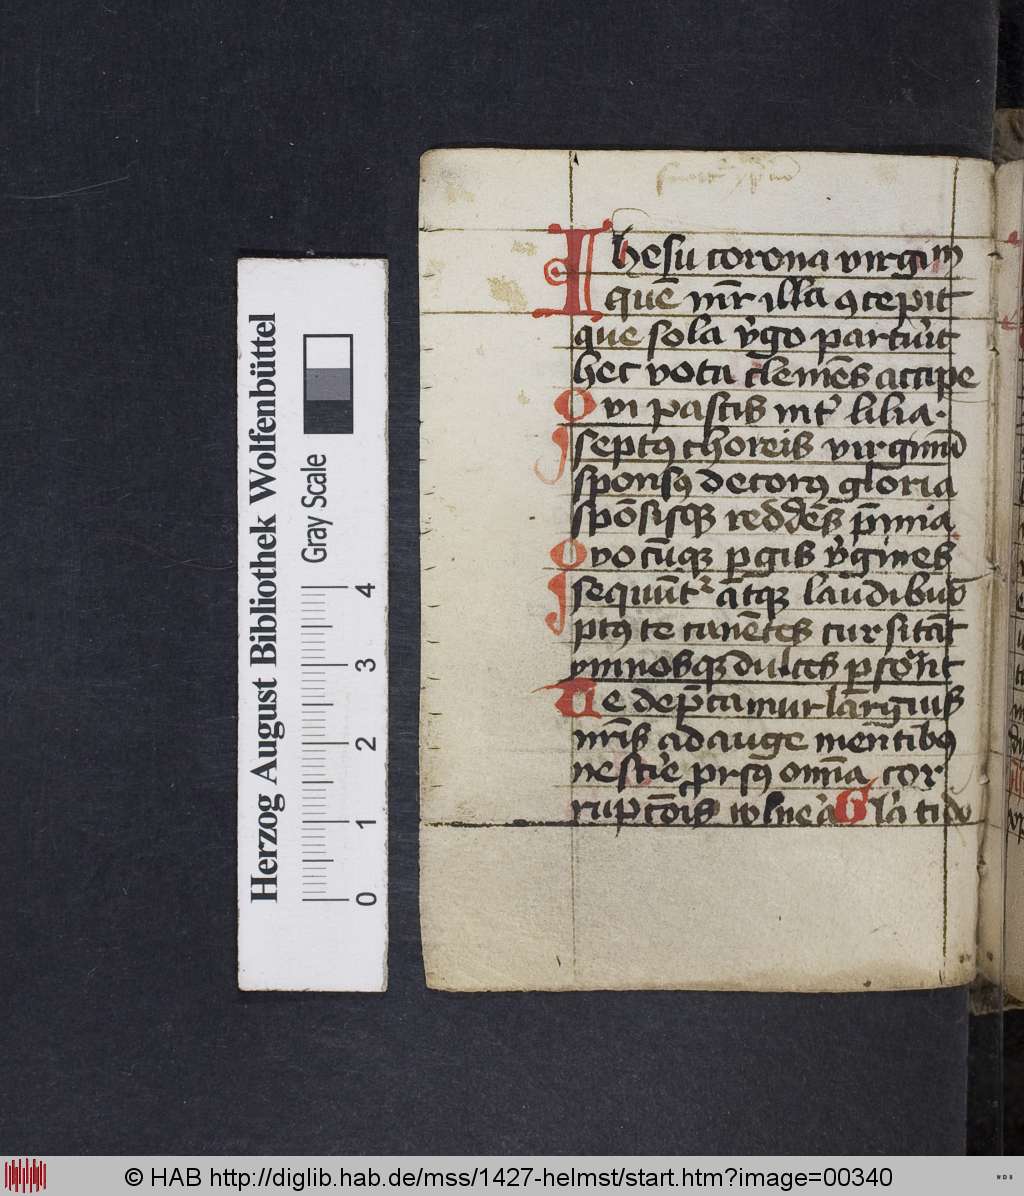 Ihesu corona virginū
quē mr̄ illa ꝯcepit
que sola v̓go partur̓it
hec vota clemēs accipe
Qui pascis int̓ lilia.
septꝰ choreis virginū
sponsꝰ decorꝰ gloria
spōsisqꝫ reddēs p̄mia
Quocūqꝫ ꝑgis v̓gines
sequūtᷣ atqꝫ laudibus
ꝑ te canētes cursitāt
ymnosqꝫ dulces ꝑsonāt
Te dep̄camur largius
nr̄is adauge mentibꝰ
nescir̓e prsꝰ omīa cor
rupcōis wlner̓a Gl̓a ti do
Herzog August Bibliothek Wolfenbüttel
Gray Scale
0 1 2 3 4
© HAB http://diglib.hab.de/mss/1427-helmst/start.htm?image=00340